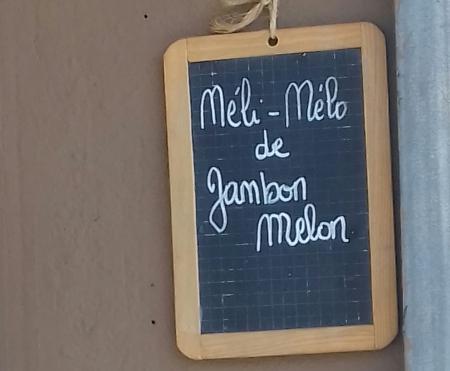 Méli-Mélo
de
Jambon
Melon